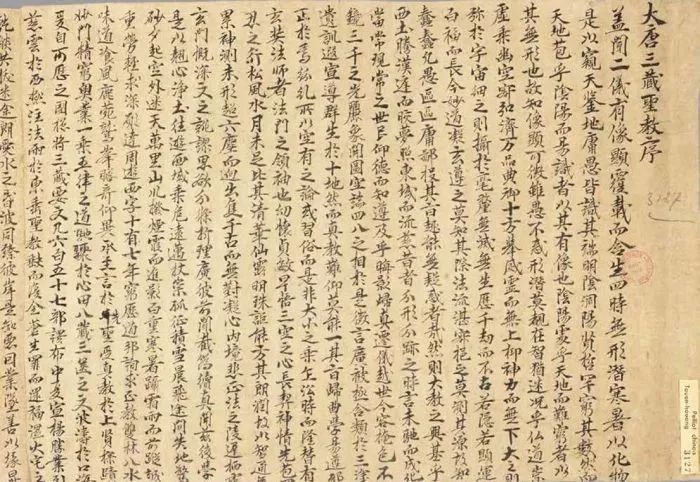 大唐三藏聖教序
蓋聞二儀有像顯覆載而含生四時無形潛寒暑以化物
是以窺天鑒地庸愚皆識其端明陰洞陽賢哲罕窮其數然而
天地苞乎陰陽而易識者以其有像也陰陽處乎天地而難窮者以
其無形也故知像顯可徵雖愚不惑形潛莫覩在智猶迷況乎仏道崇
虛乘幽空寂弘濟万品典御十方舉威靈而無上抑神力而無下大之則
弥於宇宙細之則攝於毫釐無滅無生歷千劫而不古若隱若顯運
百福而長今妙道凝玄遵之莫知其際法流湛寂挹之莫測其源故知
蠢蠢凡愚區區庸鄙投其旨趣能無疑惑者哉然則大教之興基乎
西土騰漢廷而皎夢照東域而流慈昔者分形分跡之時言未馳而成化
當常現常之世民仰德而知遵及乎晦影歸真遷儀越世金容掩色不
鏡三千之光麗象開圖空端四八之相於是微言廣被拯含類於三塗
遺訓遐宣導群生於十地然而真教難仰莫能一其旨歸曲學易遵邪
正於焉紛糺所以空有之論或習俗而是非大小之乘乍沿時而隆替有
玄奘法師者法門之領袖也幼懷貞敏早悟三空之心長契神情先苞四
忍之行松風水月未足比其清華仙露明珠詎能方其朗潤故以智通無
累神測未形超六塵而迥出隻千古而無對凝心內境悲正法之陵遲栖慮
玄門慨深文之訛謬思欲分條析理廣彼前聞截偽續真開茲後學
是以翹心淨土往遊西域乘危遠邁杖策孤征積雪晨飛途間失地驚
砂夕起空外迷天萬里山川撥煙霞而進影百重寒暑躡霜雨而前蹤誠
重勞輕求深願達周遊西宇十有七年窮歷道邦詢求正教雙林八水
味道飡風鹿菀鷲峯瞻奇仰異承至言於先聖受真教於上賢探賾
妙門精窮奧業一乘五律之道馳驟於心田八藏三篋之文波濤於口海
爰自所歷之國捴將三藏要文凡六百五十七部譯布中夏宣揚勝業引
慈雲於西極注法雨於東垂聖教缺而復全蒼生罪而還福濕火宅之
乾焰共拔迷途朗愛水之昏波同臻彼岸是知惡因業墜善以緣昇
3127
Pelliot chinois
Touen-houang
3127